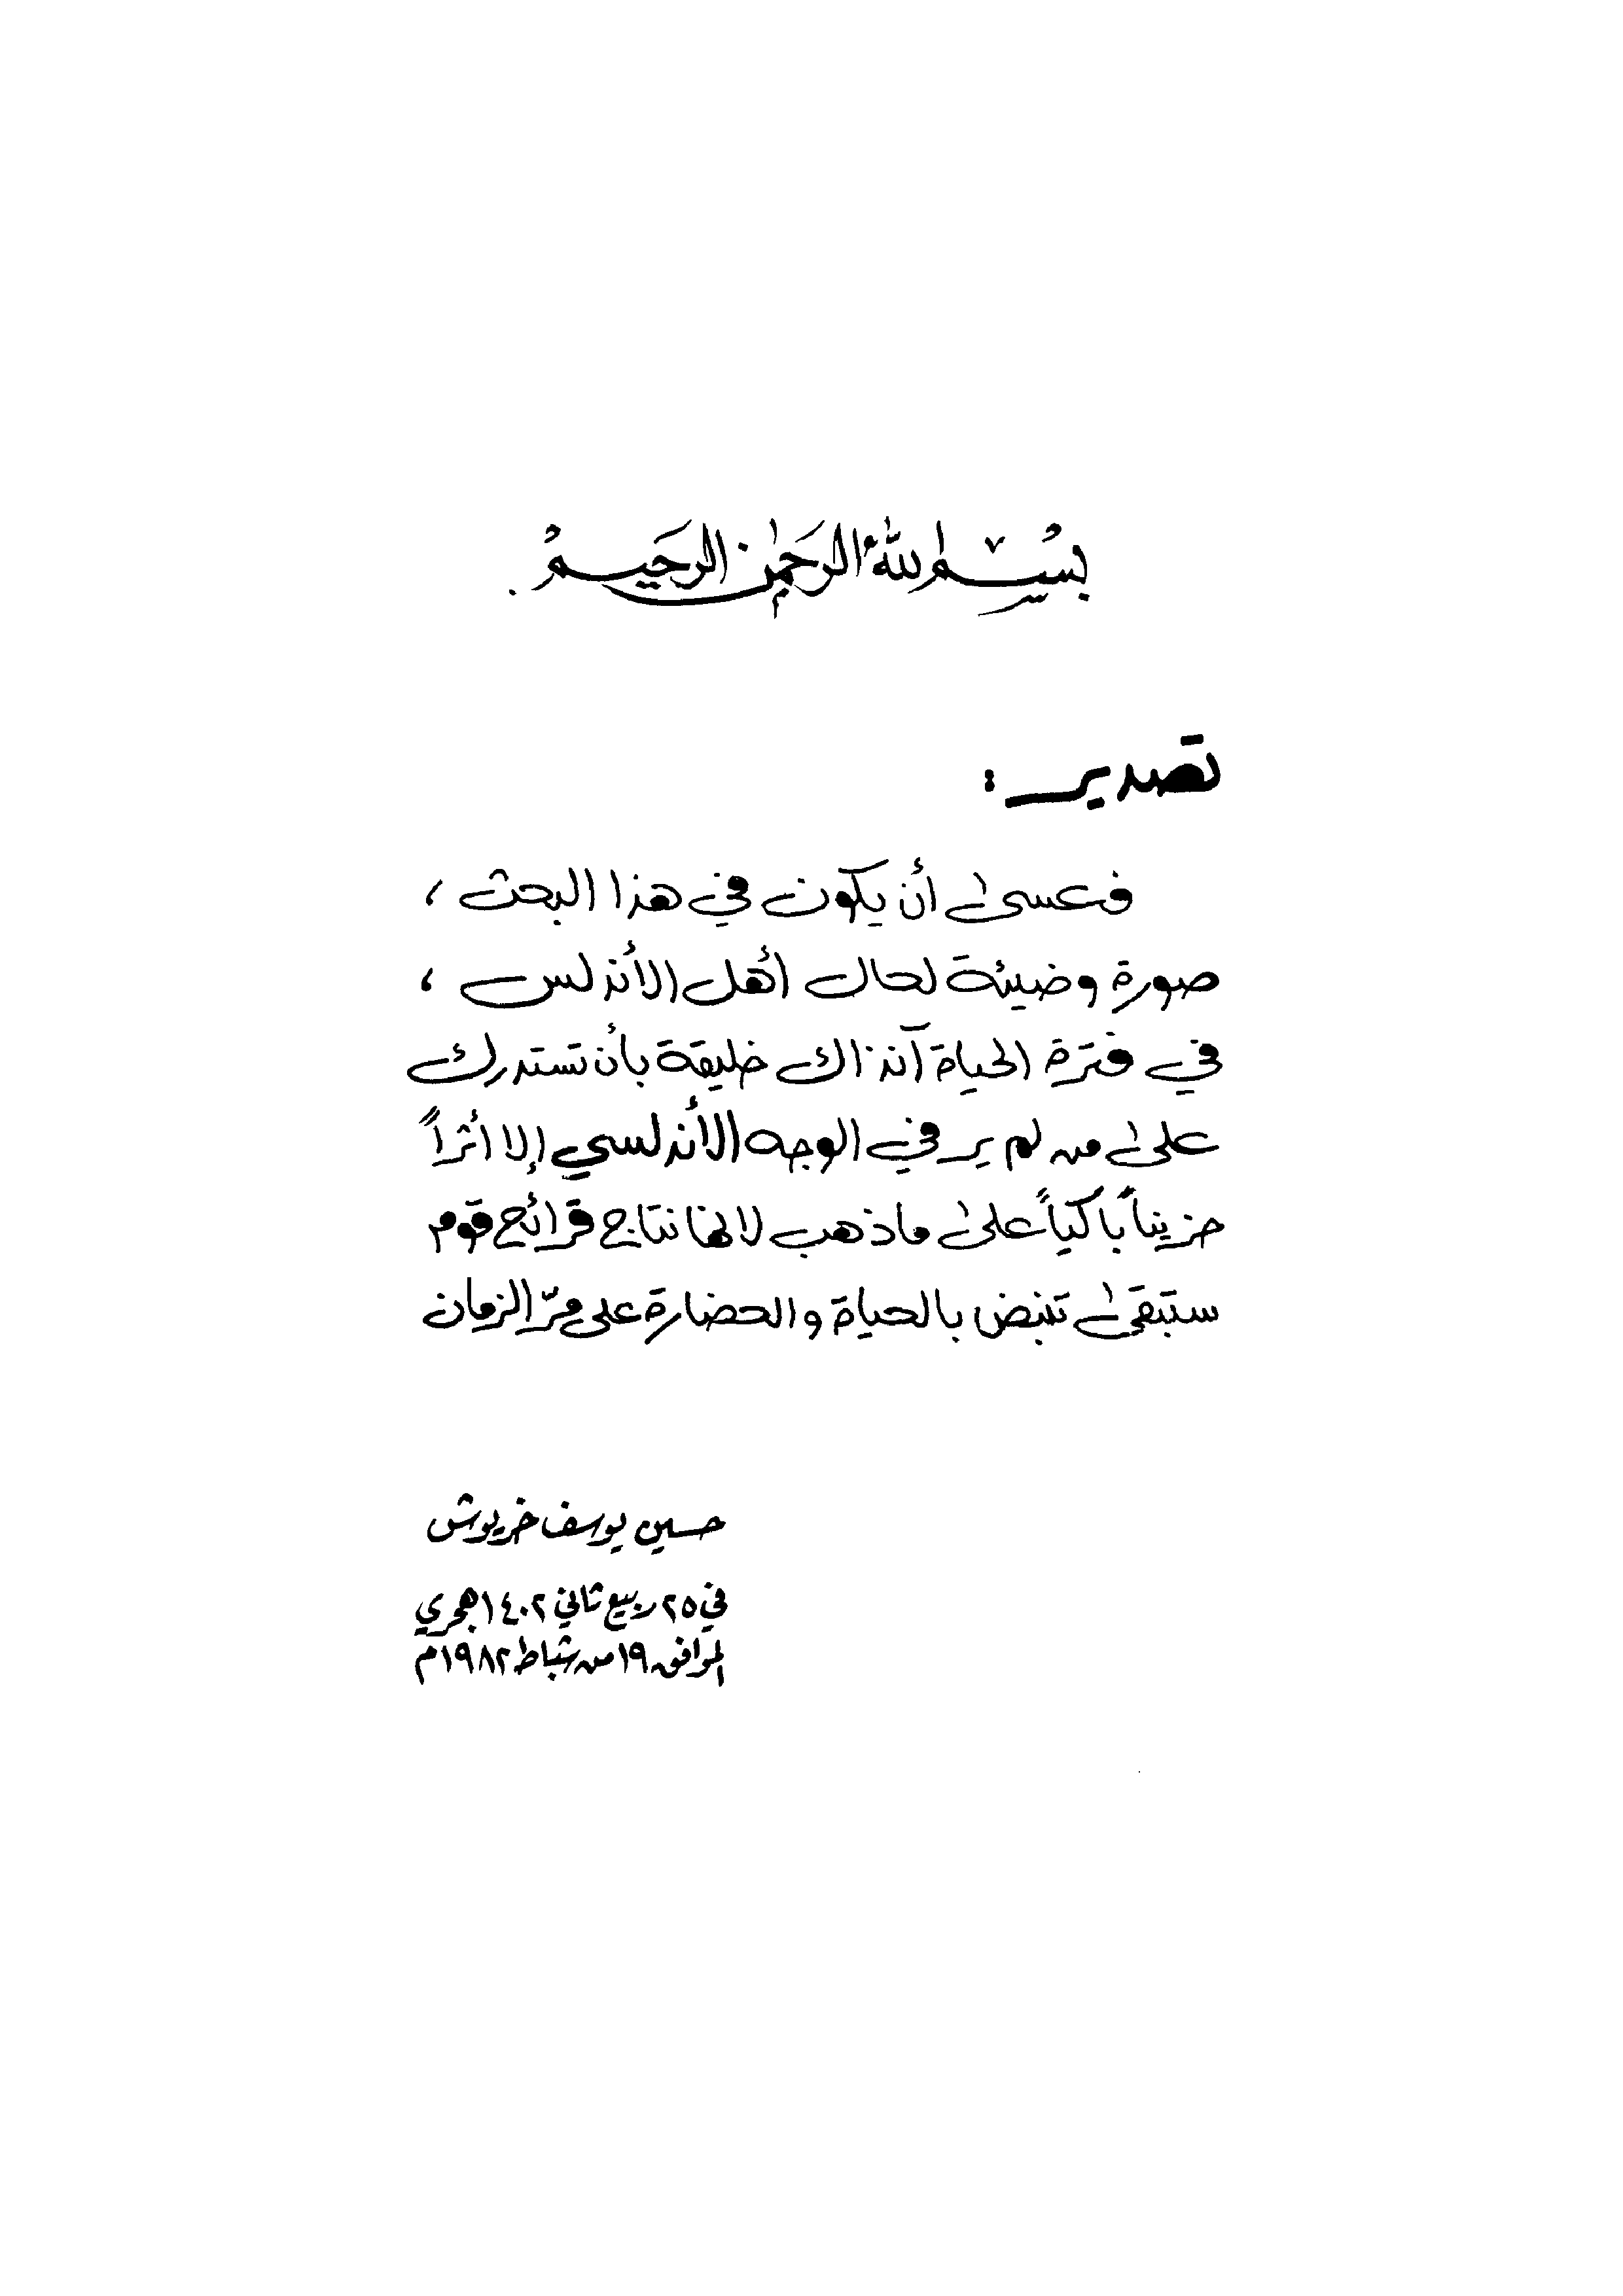 بسم الله الرحمن الرحيم
تصدير :
فعسى أن يكون في هذا البحث ،
صورة وضيئة لحال أهل الأندلس ،
في فترة الحياة آنذاك خليقة بأن تستدرك
على من لم ير في الوجه الأندلسي إلا أثراً
حزيناً باكياً على ما ذهب لا لهنا نتاج قرائح قوم
ستبقى تنبض بالحياة والحضارة على مرّ الزمان
حسين يوسف خريوش
في ٢٥ ربيع ثاني ١٤٠٢ هجري
الموافق ١٩ من شباط ١٩٨٢م